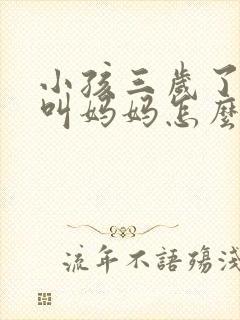 小孩三歲了
叫媽媽怎麼
流年不語殤淺